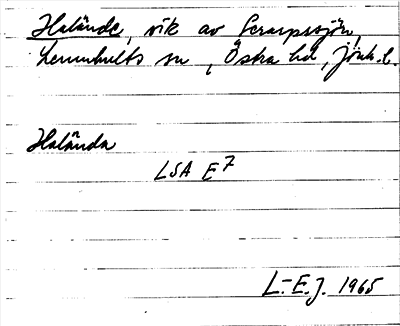 Halände, vik av Serarpssjön,
Lemnhults sn, Östra hd, Jönk. l.
Halända
LSA E7
L.-E.J. 1965